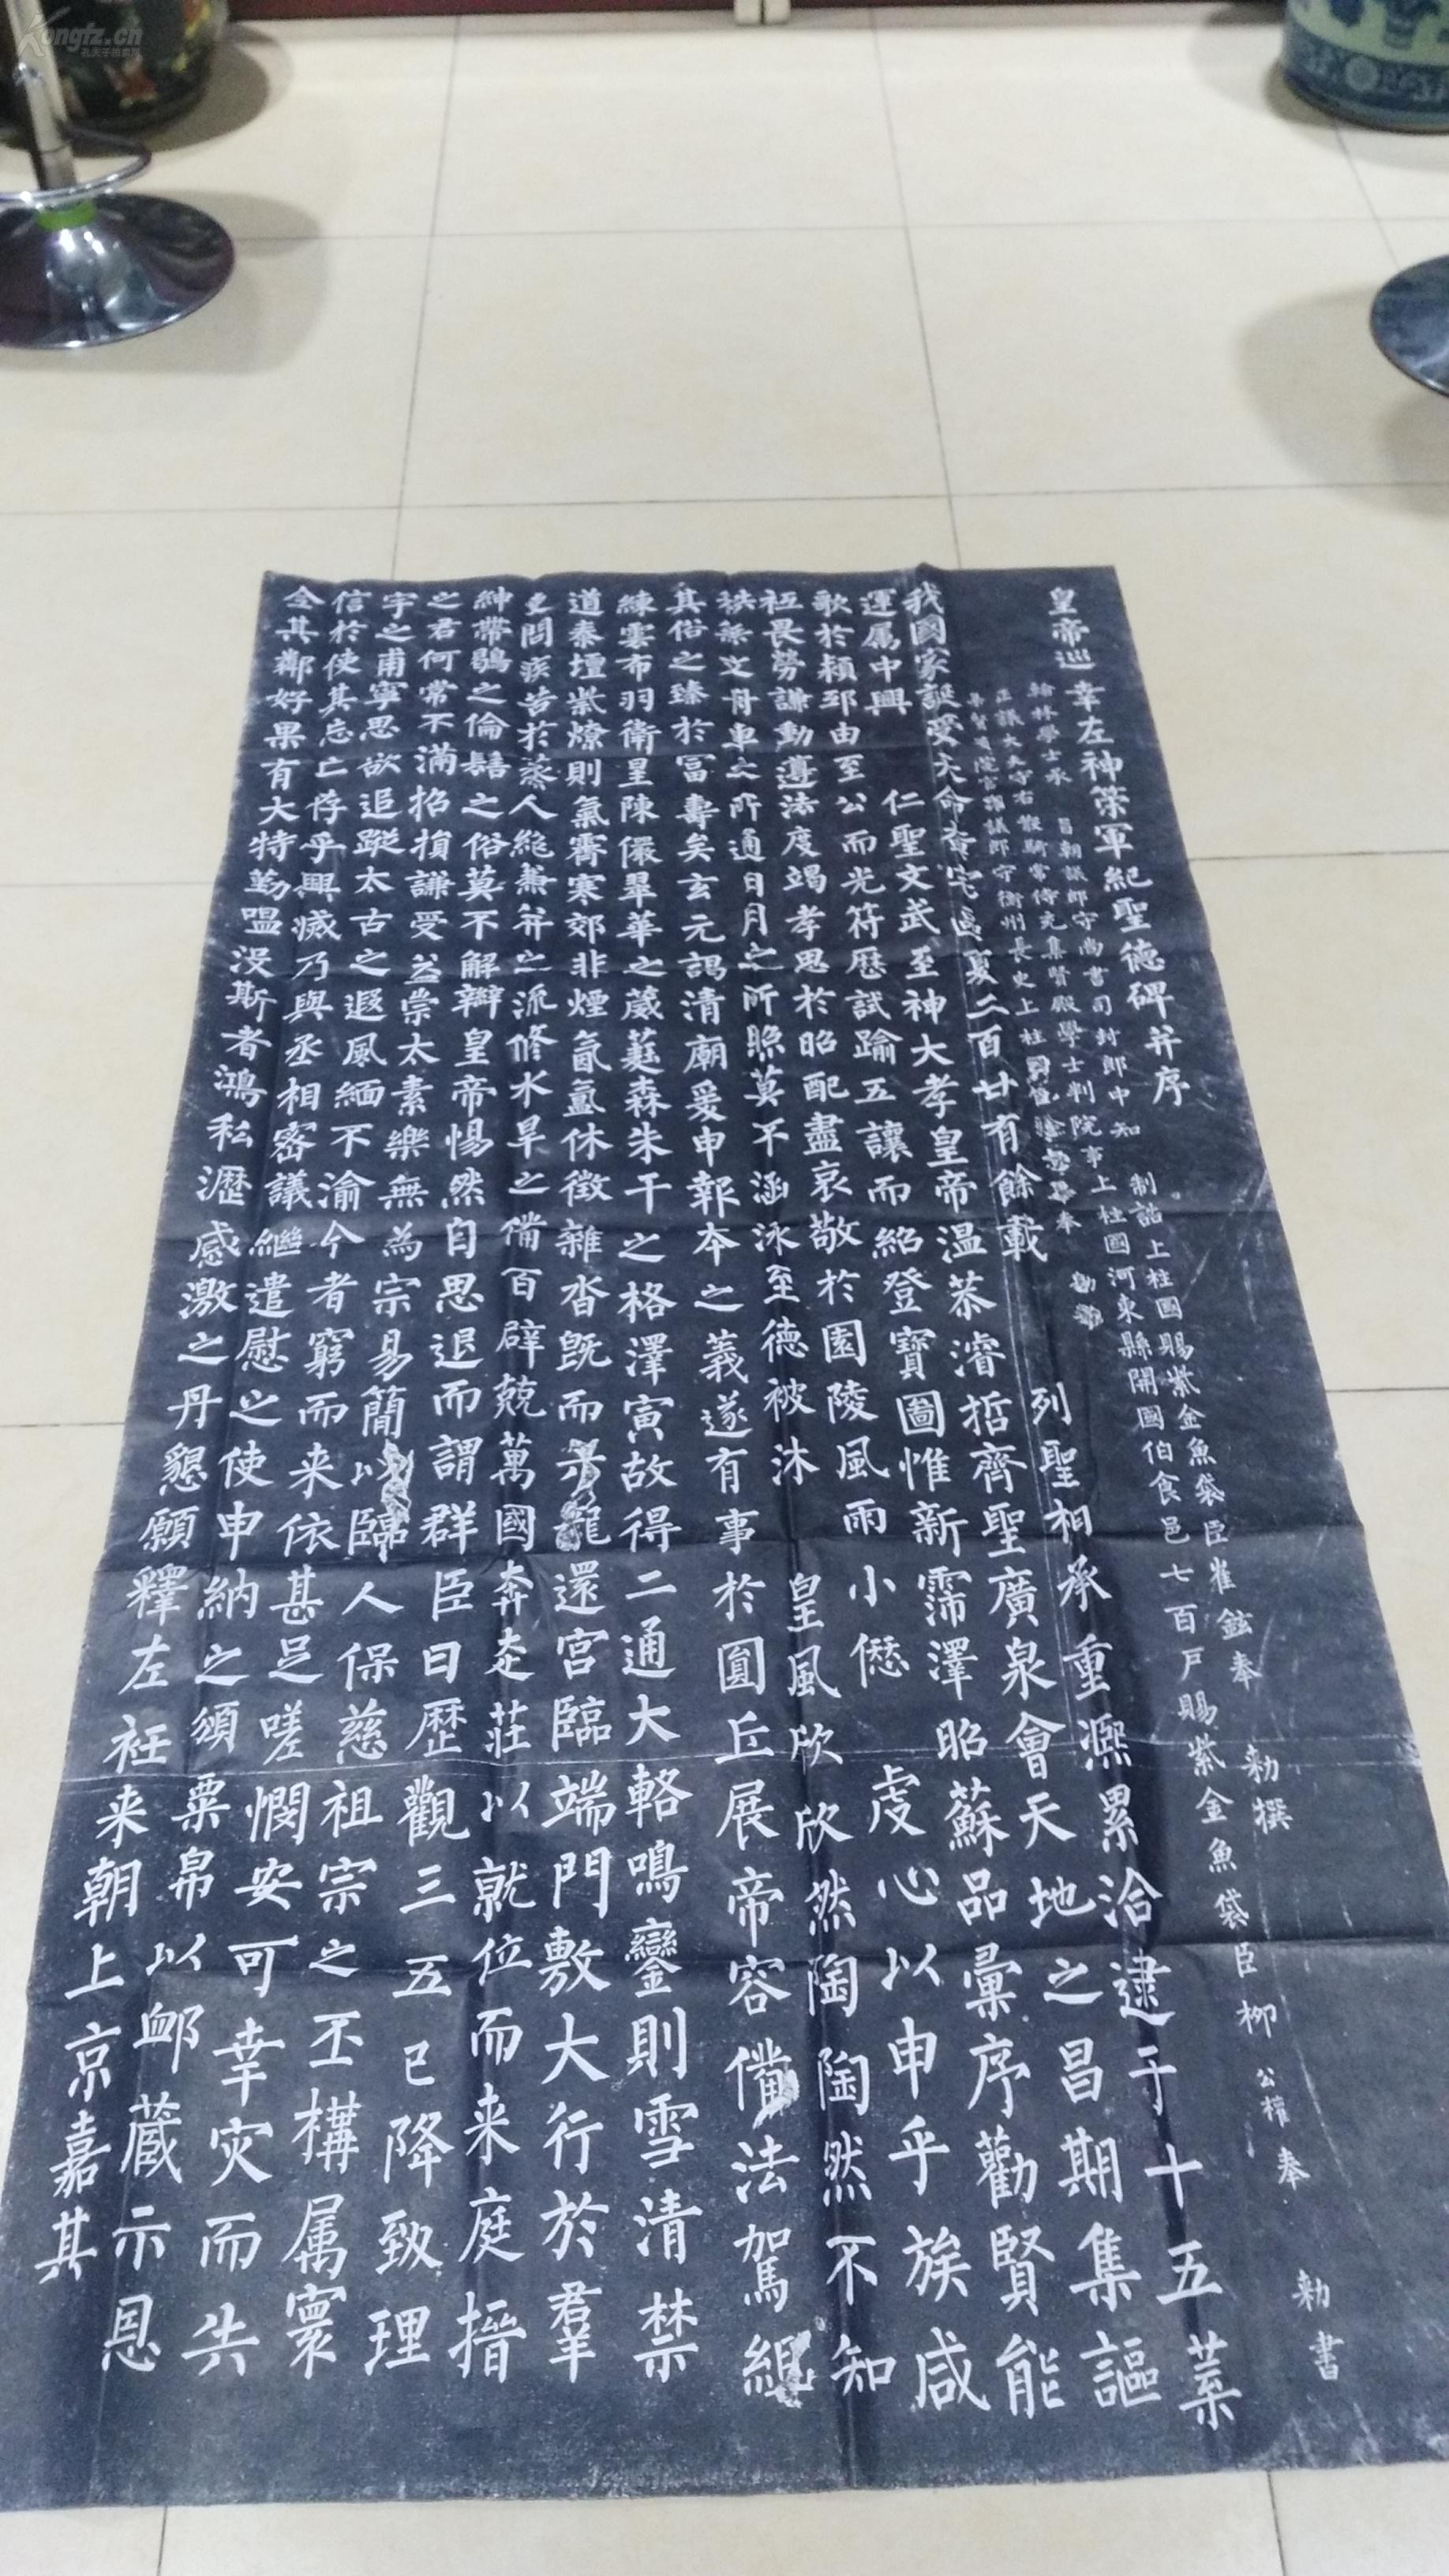 皇帝巡幸左神策軍紀聖德碑并序
翰林學士承 旨朝議郎守尚書司封郎中知 制誥上柱國賜紫金魚袋臣崔鉉奉 勅撰
正議大夫守右散騎常侍充集賢殿學士判院事上柱國河東縣開國伯食邑七百戶賜紫金魚袋臣柳公權奉 勅書
議郎守衢州長史上柱國 奉 勅
我國家誕受天命奄宅區夏二百廿有餘載 列聖相承重熙累洽逮于十五葉
運属中興 仁聖文武至神大孝皇帝温恭濬哲齊聖廣泉會天地之昌期集謳
歌於頴邸由至公而光符歷試踰五讓而紹登寶圖惟新霈澤昭蘇品彙序勸賢能
祗畏勞謙動遵法度竭孝思於昭配盡哀敬於園陵風雨小愆 虔心以申乎族咸
秩無文舟車之所通日月之所照莫不涵泳至德被沐 皇風欣欣然陶陶然不知
其俗之臻於富壽矣玄元謁清廟爰申報本之義遂有事於圓丘展帝容備法駕組
練雲布羽衛星陳儼翠華之葳蕤森朱干之格澤寅故得二通大輅鳴鑾則雪清禁
道泰壇紫燎則氣霽寒郊非煙氤氳休徵雜沓既而六龍還宮臨端門敷大行於羣
吏問疾苦於蒸人絶兼并之流修水旱之備百辟兢萬國奔走莊以就位而来庭搢
紳帶鶡之倫鬍之俗莫不解辮皇帝惕然自思退而謂群臣曰歷觀三五已降致理
之君何常不滿招損謙受益崇太素樂無為宗易簡以臨人保慈祖宗之丕構属寰
宇之甫寧思欲追蹤太古之遐風緬不渝今者窮而来依甚足嗟憫安可幸灾而失
信於使其忘亡存乎興滅乃與丞相密議繼遣慰之使申納之頒粟帛以卹蔵示恩
全其鄰好果有大特勤嗢没斯者鴻私瀝感激之丹懇願釋左衽来朝上京嘉其
Kongfz.cn
孔夫子拍卖网